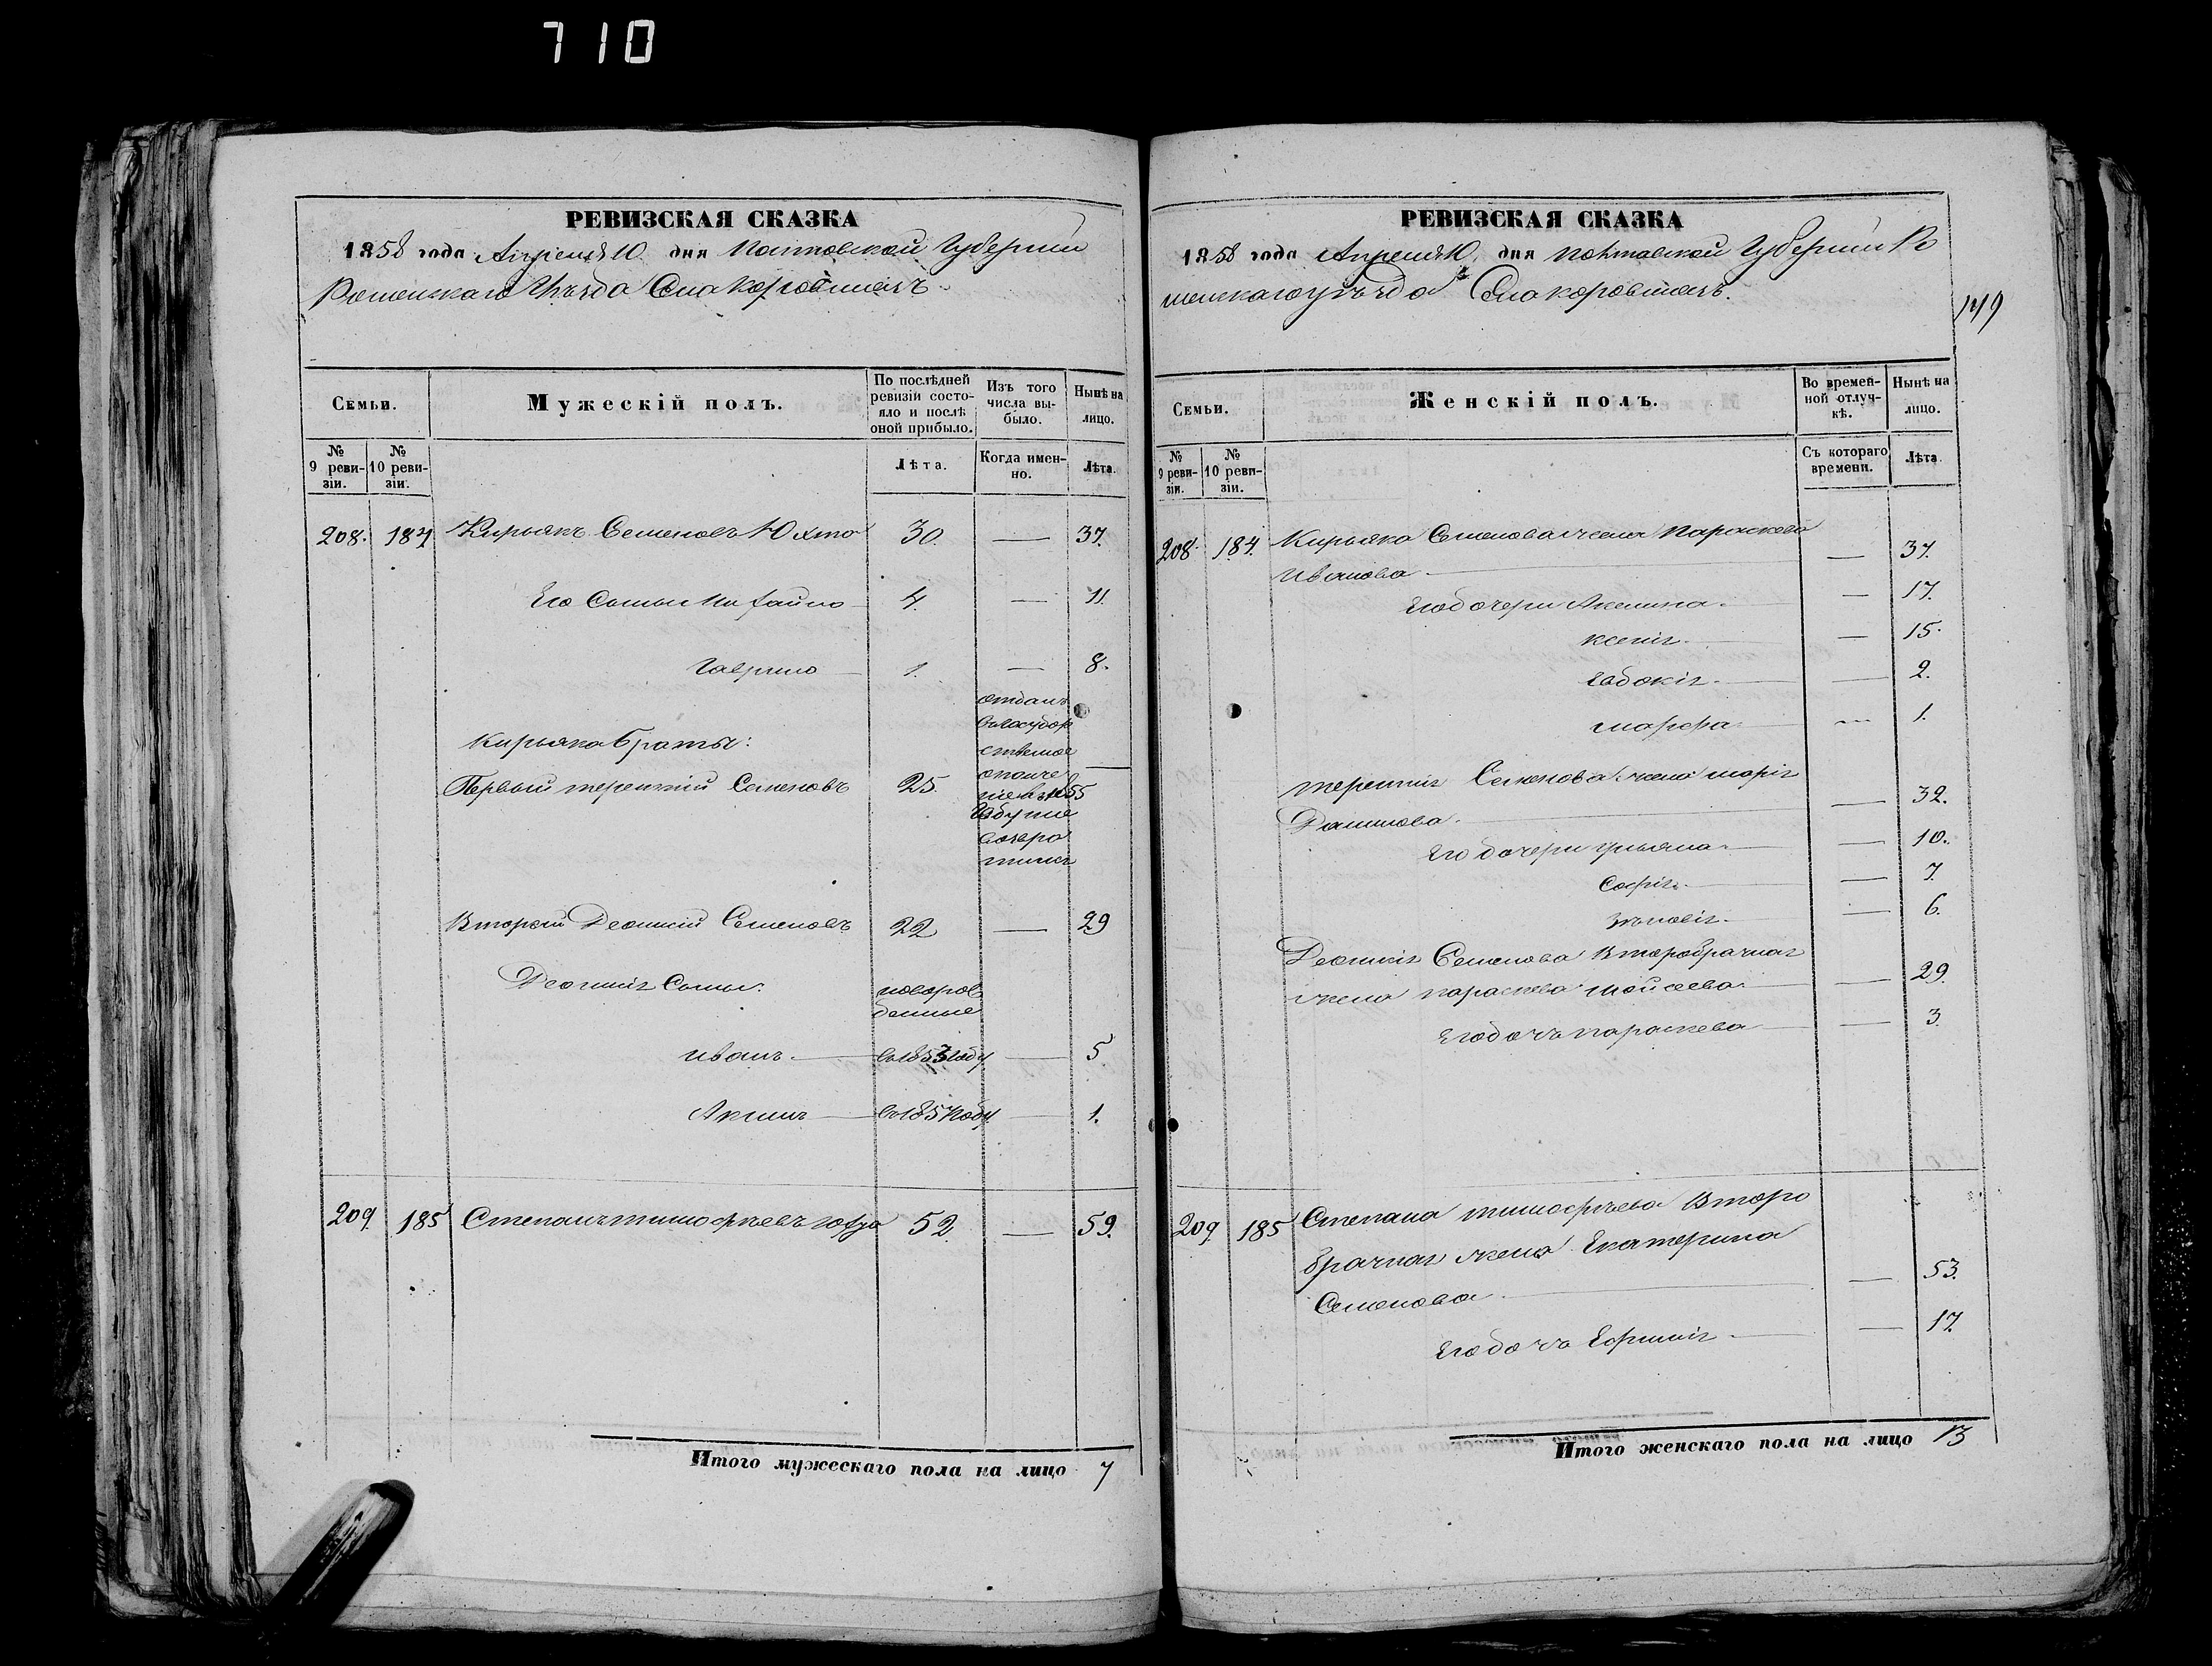 710
РЕВИЗСКАЯ СКАЗКА
1858 года Апреля 10 дня Полтавской Губернии
Роменскаго Уѣзда Села Коровинецъ
Семьи.
Мужескій полъ.
По послѣдней ревизіи состояло и послѣ оной прибыло.
Изъ того числа выбыло.
Нынѣ на лицо.
№ 9 ревизіи.
№ 10 ревизіи.
Лѣта.
Когда именно.
Лѣта.
208. 184 Кирьякъ Семеновъ Юхта 30. — 37.
Его Сыны 4. — 11.
Гаврило 1. — 8.
Кирьяка браты:
Первый терентій Семеновъ 25.
отданъ
въ государ
ственное
ополче
ніе въ 1855
Году
Второй Леонтій Семеновъ 22 — 29
Леонтія Сыны: новорож
денные
иванъ. — въ 1853 году — 5
Акимъ — въ 1857 году — 1.
209 185 Степанъ тимофѣевъ 52. — 59.
Итого мужескаго пола на лицо 7
РЕВИЗСКАЯ СКАЗКА
1858 года Апреля 10 дня Полтавской Губерніи Ро
менскаго уѣзда Села коровинецъ.
149
Семьи.
Женскій полъ.
Во временной отлучкѣ.
Нынѣ на лицо.
№ 9 ревизіи.
№ 10 ревизіи.
Съ котораго времени.
Лѣта.
208. 184. Кирьяка Семенова жена Параскева
Иванова — — 37.
Его дочери Акилина — — 17.
ксенія — — 15.
Евдокія — — 2.
марфа — — 1.
терентія Семенова жена марія
— — 32.
Его дочери ульяна — — 10.
Софія — — 7.
зѣновія — — 6.
Леонтія Семенова Второбрачная
жена параскева Мойсеева — — 29.
Его дочь параскева — — 3.
209 185 Степана тимофѣева Второ
брачная жена Екатерина
Семенова — — 53.
Его дочь Ефимія — — 17.
Итого женскаго пола на лицо 13